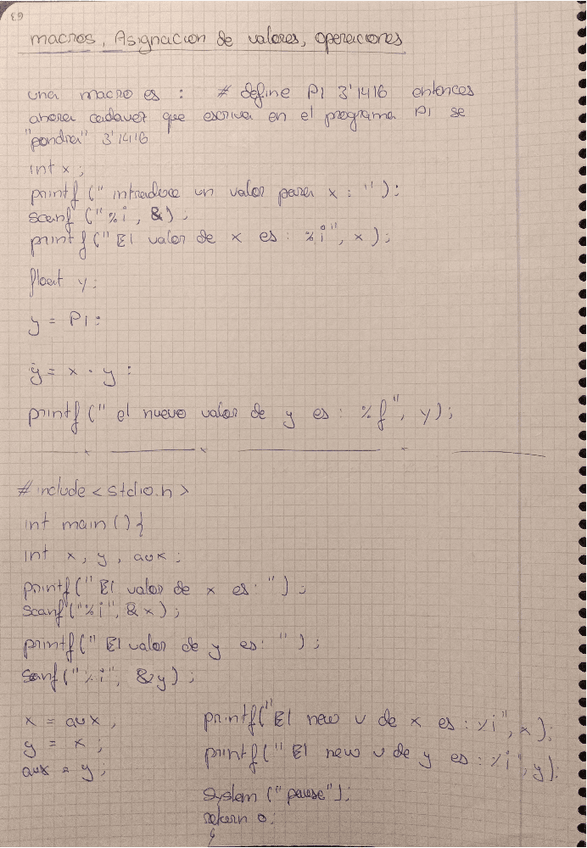 63
macros, Asignacion de valores, operaciones
una macro es : # define PI 3'1416 entonces
ahora cadavez que escriva en el programa PI se
"pondra" 3'1416
int x ;
printf (" introduce un valor para x : " ) ;
scanf ("%i , &) ;
printf (" El valor de x es : %i", x ) ;
float y ;
y = PI ;
y = x · y ;
printf (" el nuevo valor de y es : %f ", y ) ;
# include < stdio.h >
int main () {
int x, y , aux ;
printf (" El valor de x es: " ) ;
scanf ("%i", & x ) ;
printf (" El valor de y es: " ) ;
sanf ("%i", &y ) ;
x = aux ;
y = x ;
aux = y ;
printf ("El new v de x es : %i", x ) ;
printf (" El new v de y es : %i", y ) ;
system ("pause") ;
return 0 ;